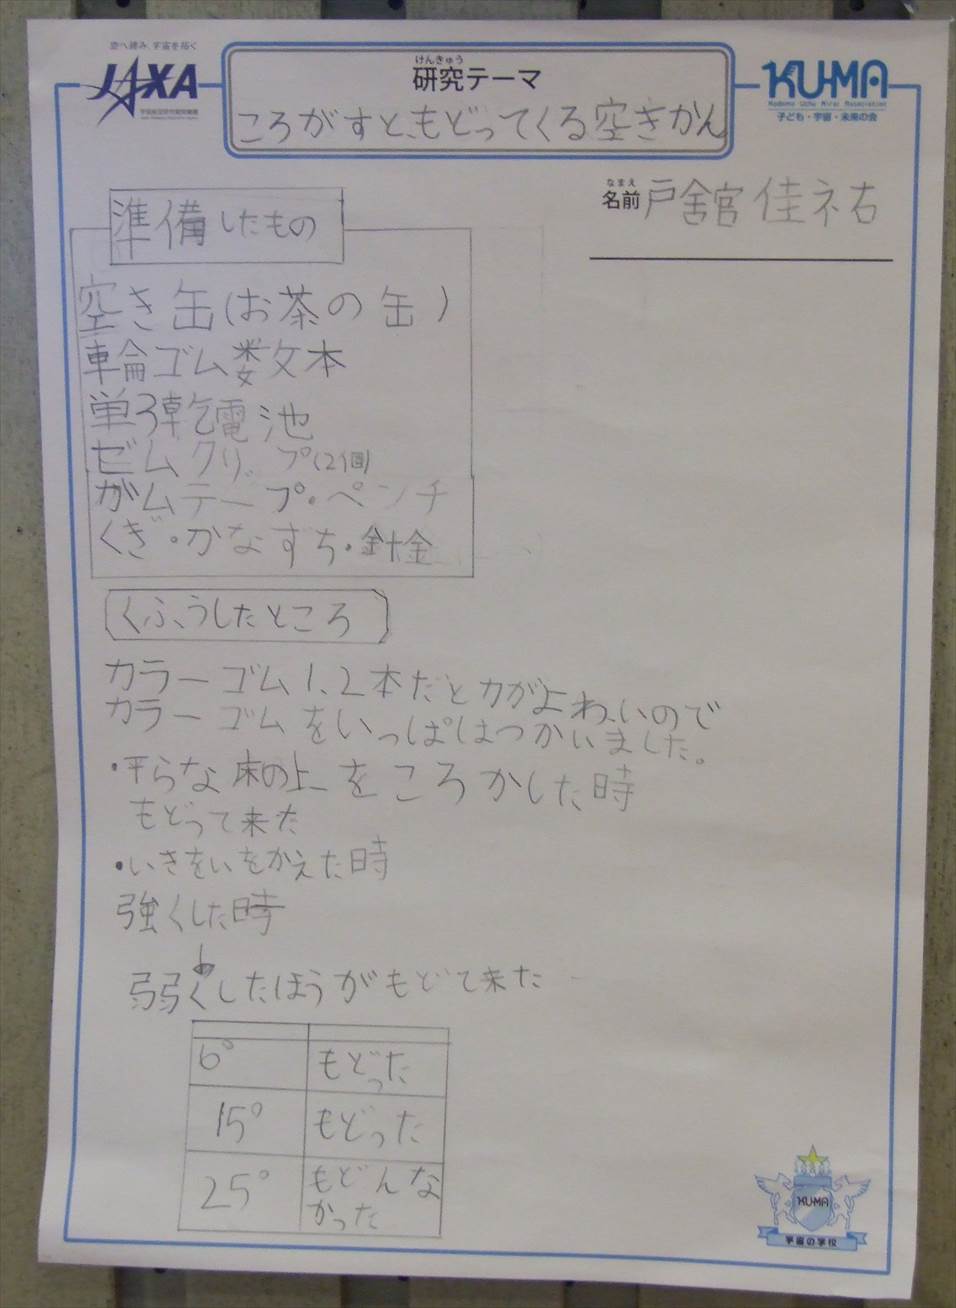 空へ挑み、宇宙を拓く
JAXA
けんきゅう
研究テーマ
ころがすと、もどってくる空きかん
KUMA
Kodomo Uchu Mirai Association
子ども・宇宙・未来の会
なまえ
名前 戸舘宮 佳ネ右
準備したもの
空き缶(お茶の缶)
車輪ゴム数本
単3乾電池
ゼムクリップ(2個)
ガムテープ・ペンチ
くぎ・かなずち・針金
くふうしたところ
カラーゴム1、2本だと力がよわいので
カラーゴムをいっぱいつかいました。
・平らな床の上をころかした時
もどって来た
・いきをいをかえた時
強くした時
弱くしたほうがもどて来た
6° もどった
15° もどった
25° もどんなかった
KUMA
宇宙の学校